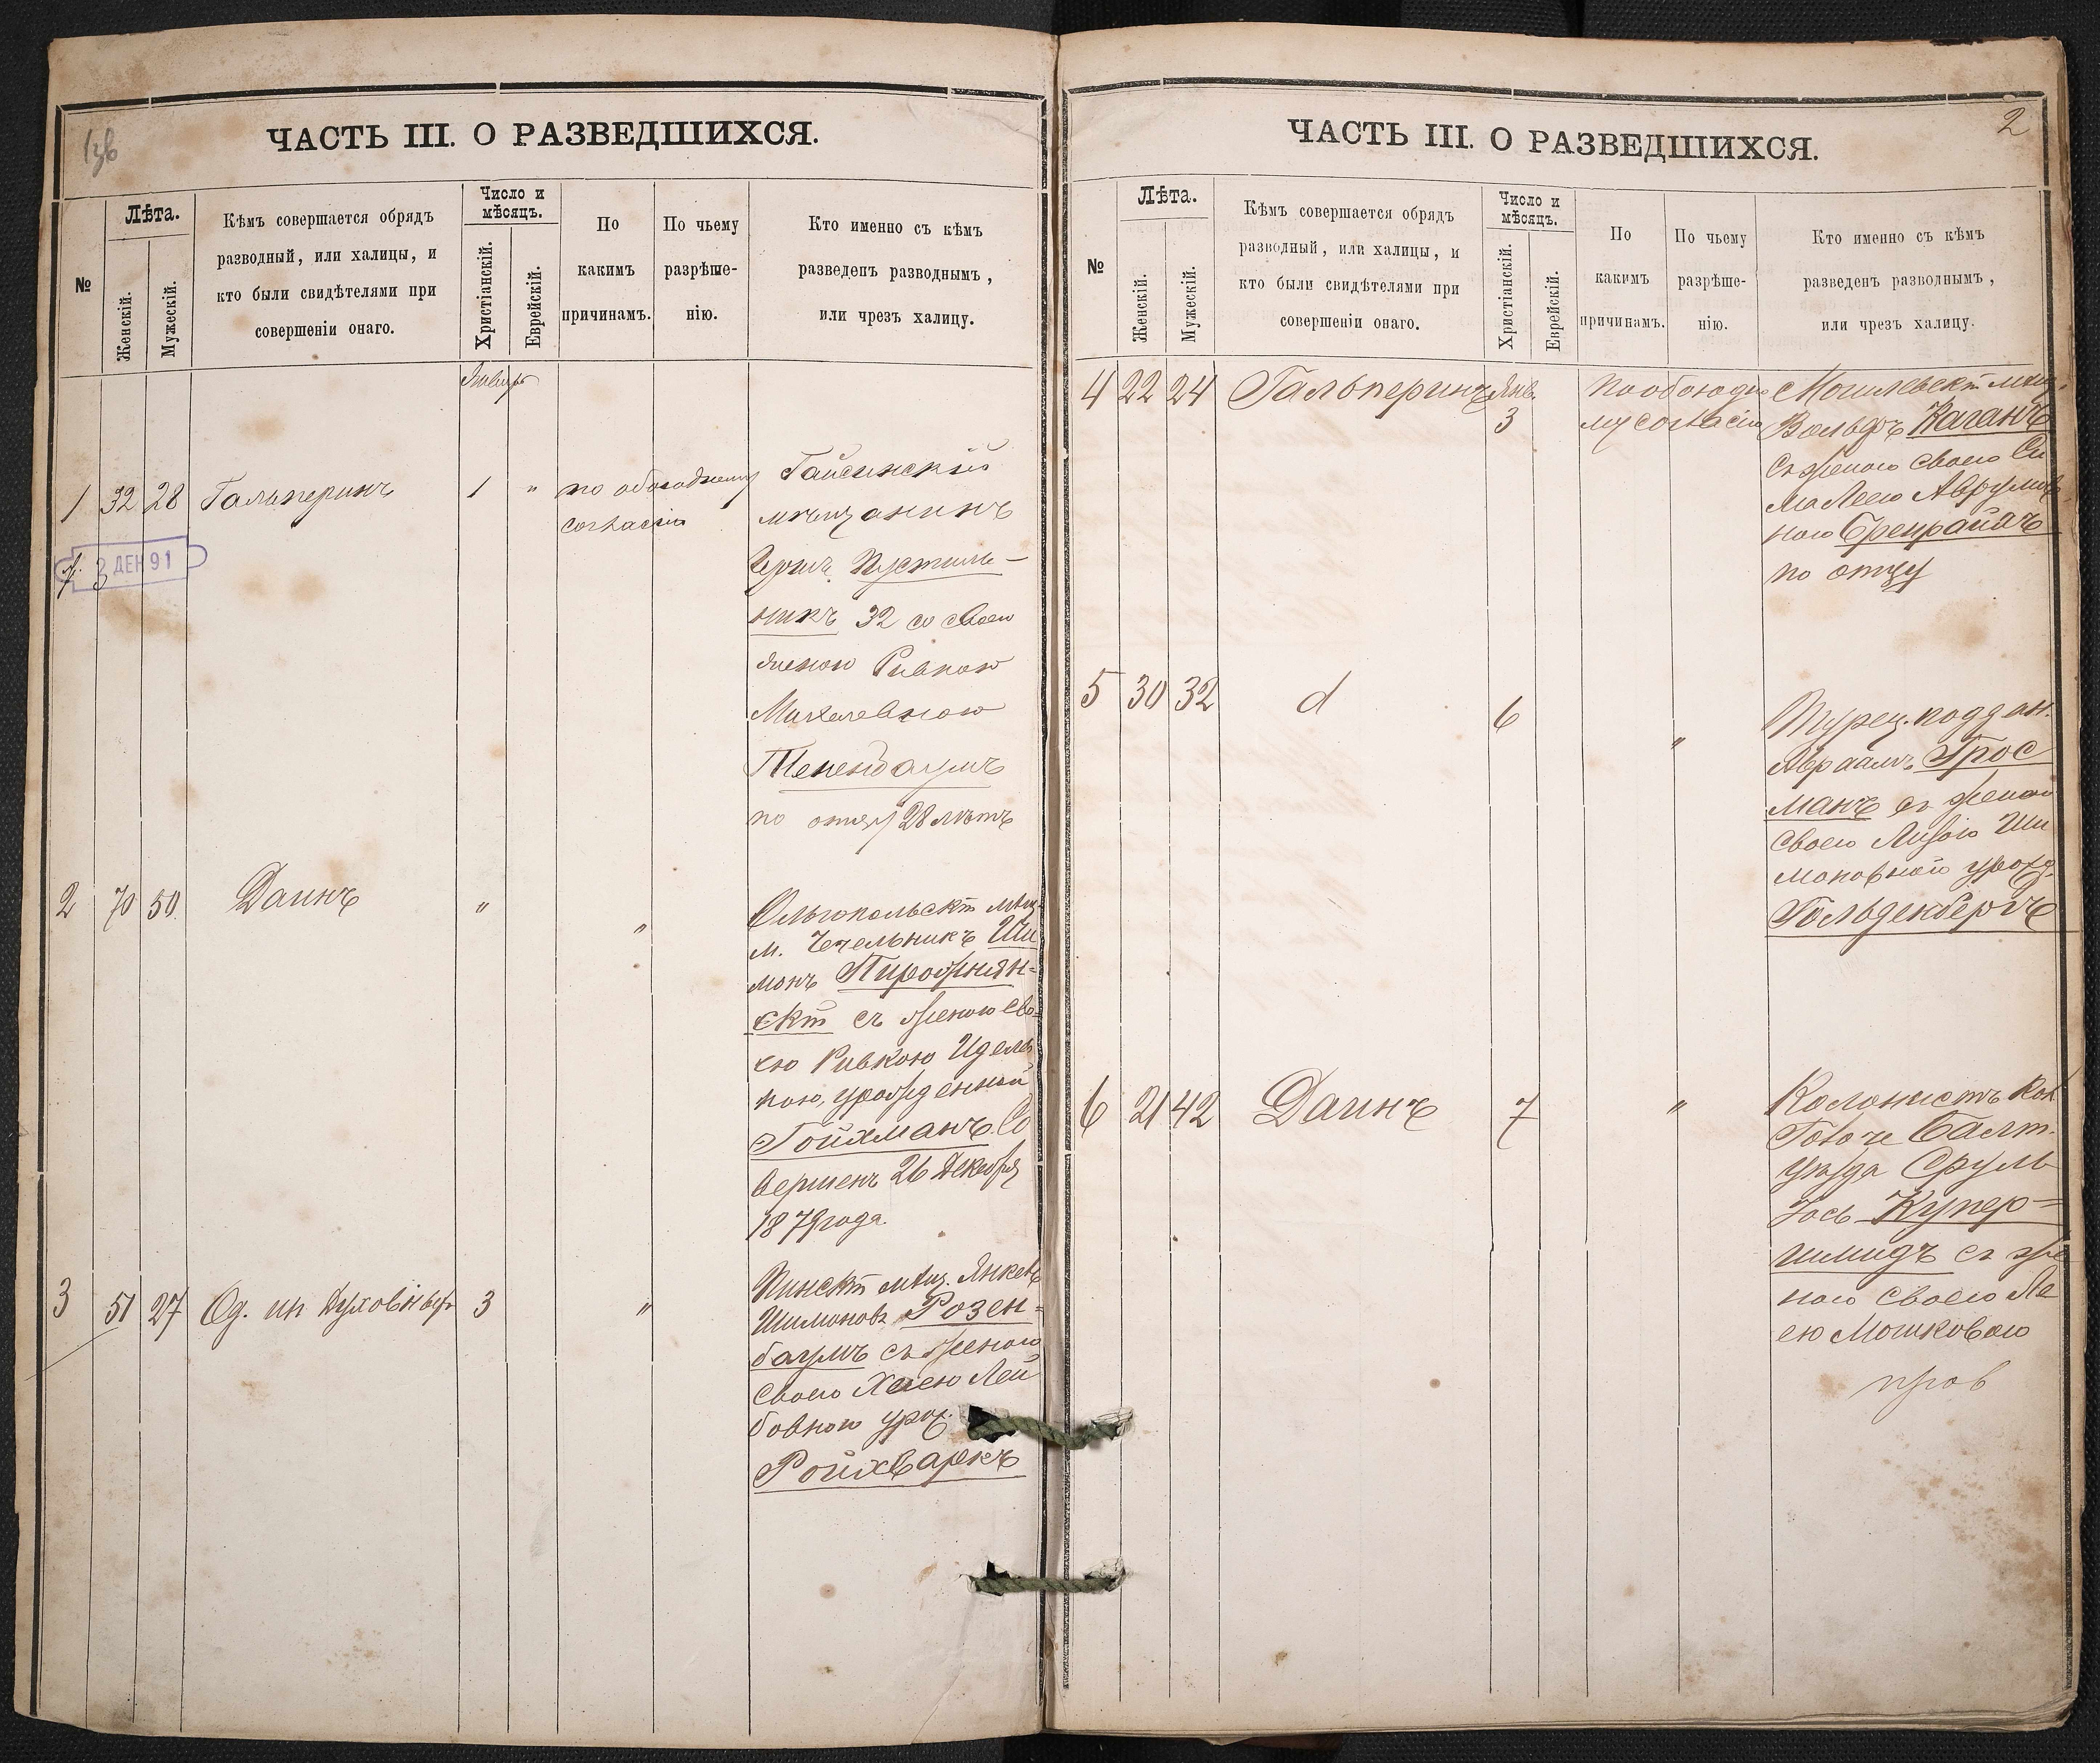 ЧАСТЬ III. О РАЗВЕДШИХСЯ.
№
Лѣта.
Женскій.
Мужескій.
Кѣмъ совершается обрядъ
разводный, или халицы, и
кто были свидѣтелями при
совершеніи онаго.
Число и
мѣсяцъ.
Христіанскій.
Еврейскій.
По
какимъ
причинамъ.
По чьему
разрѣше-
нію.
Кто именно съ кѣмъ
разведенъ разводнымъ,
или чрезъ халицу.
Январь
1 32 28 Гальперинъ 1 "
по обоюдному
согласію
Гайсинскій
мѣщанинъ
Герш Пустиль-
никъ 32 со своею
женою Ривкою
Михелевною
Тененбаумъ
по отцу 28 лѣтъ
2 ДЕН 91
2 70 50 Даинъ " "
Ольгопольскій мѣщ.
м. Чечельникъ Ши
монъ Пирожнян-
скій съ женою сво-
ею Ривкою Идель
ною, урожденной
Гойхманъ. Со
вершенъ 26 Декабря
1879 года.
3 51 27 Од. ин Духовныхъ 3 "
Пинскій мѣщ. Янкель
Шимоновъ Розен-
баумъ съ женою
своею Хаею Лей
бовною урож.
Ройхваркъ
2
ЧАСТЬ III. О РАЗВЕДШИХСЯ.
№
Лѣта.
Женскій.
Мужескій.
Кѣмъ совершается обрядъ
разводный, или халицы, и
кто были свидѣтелями при
совершеніи онаго.
Число и
мѣсяцъ.
Христіанскій.
Еврейскій.
По
какимъ
причинамъ.
По чьему
разрѣше-
нію.
Кто именно съ кѣмъ
разведенъ разводнымъ,
или чрезъ халицу.
4 22 24 Гальперинъ Янв.
3
по обоюдно
му согласію
Могилевскій мѣщ.
Вольфъ Каганъ
съ женою своею Си
ма Леею Аврумов
ною
по отцу
5 30 32 d 6 "
Турец. поддан.
Авраамъ Грос
манъ съ женою
своею Лизою Ши
моновной урожд.
Гольденбергъ
6 21 42 Даинъ 7 "
Колонистъ Кол
Балт.
уѣзда Сруль
Іось Купер-
шмидъ съ же
ною своею Ле
ею Мошковою